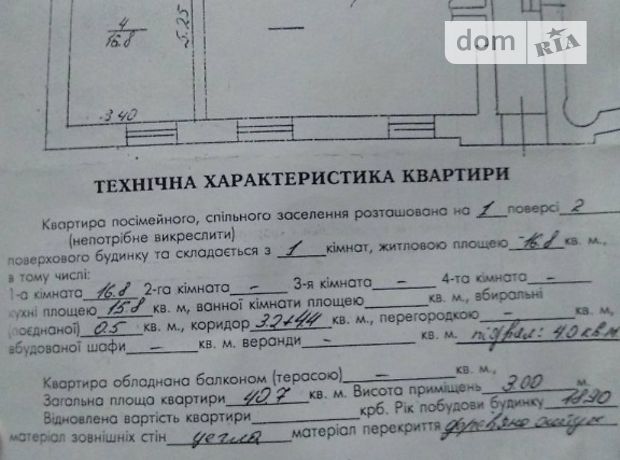 4
16.8
5.25
3.40
dom RIA
ТЕХНІЧНА ХАРАКТЕРИСТИКА КВАРТИРИ
Квартира посімейного, спільного заселення розташована на 1 поверсі 2
(непотрібне викреслити)
поверхового будинку та складається з 1 кімнат, житловою площею 16.8 кв. м.,
в тому числі:
1-а кімната 16.8 2-га кімната - 3-я кімната - 4-та кімната -
кухні площею 15.8 кв. м, ванної кімнати площею кв. м., вбиральні
(поєднаної) 0.5 кв. м., коридор 3.2+4.4 кв. м., перегородкою - кв. м.,
вбудованої шафи - кв. м. веранди - кв. м. підвал: 4.0 кв м
Квартира обладнана балконом (терасою) - кв. м.,
Загальна площа квартири 40.7 кв. м. Висота приміщень 3.00 м.
Відновлена вартість квартири крб. Рік побудови будинку 1890
матеріал зовнішніх стін цегла матеріал перекриття